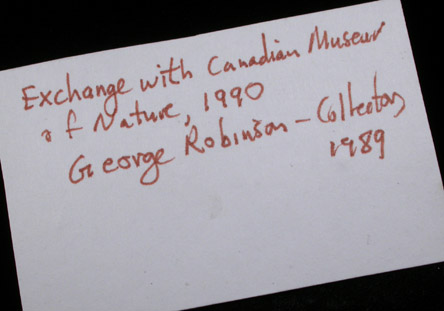 Exchange with Canadian Museum
of Nature, 1990
George Robinson - Collector,
1989